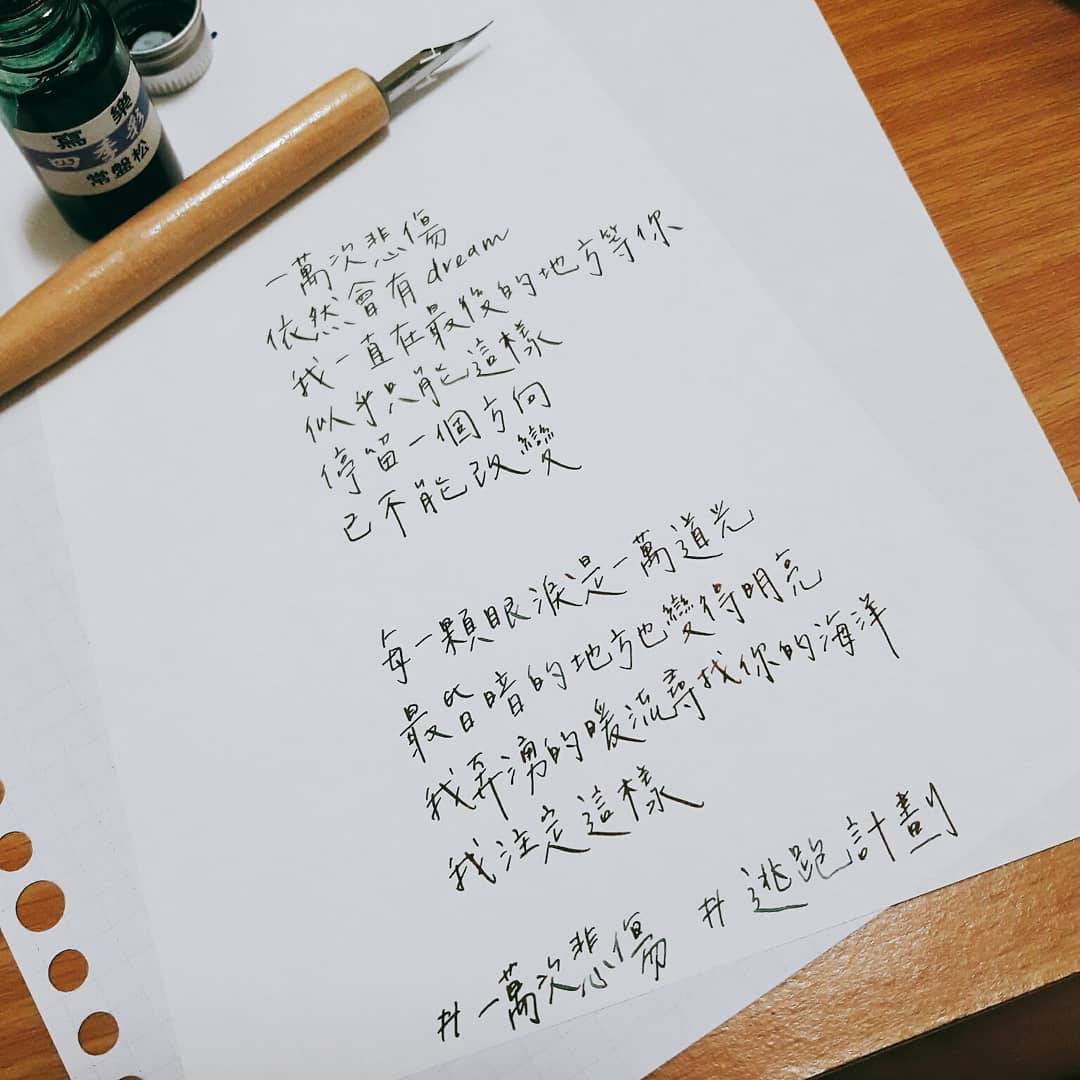 寫樂
四季彩
常盤松
一萬次悲傷
依然會有dream
我一直在最後的地方等你
似乎只能這樣
停留一個方向
已不能改變
每一顆眼淚是一萬道光
最昏暗的地方也變得明亮
我奔湧的暖流尋找你的海洋
我注定這樣
#一萬次悲傷 #逃跑計劃